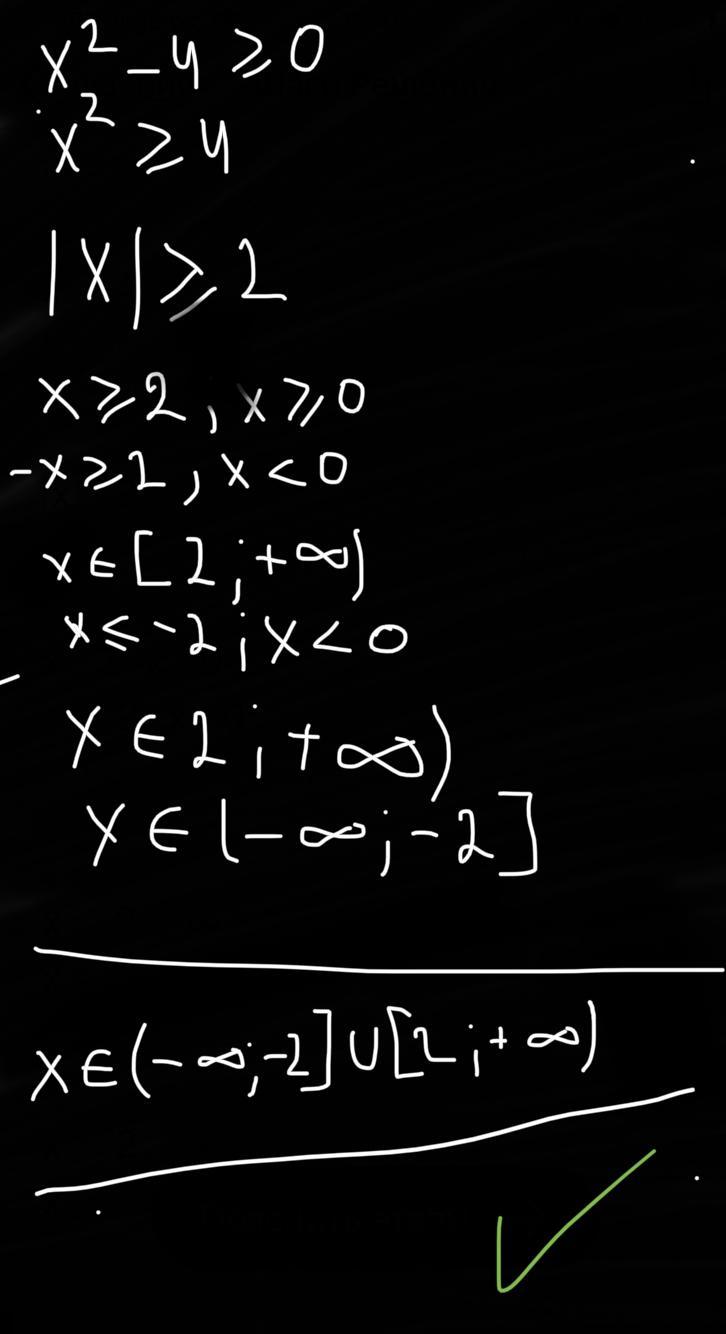 x² - 4 ≥ 0
x² ≥ 4
|x| ≥ 2
x ≥ 2, x ≥ 0
-x ≥ 2, x < 0
x ∈ [2; +∞)
x ≤ -2; x < 0
x ∈ 2; +∞)
x ∈ (-∞; -2]
x ∈ (-∞; -2] ∪ [2; +∞)